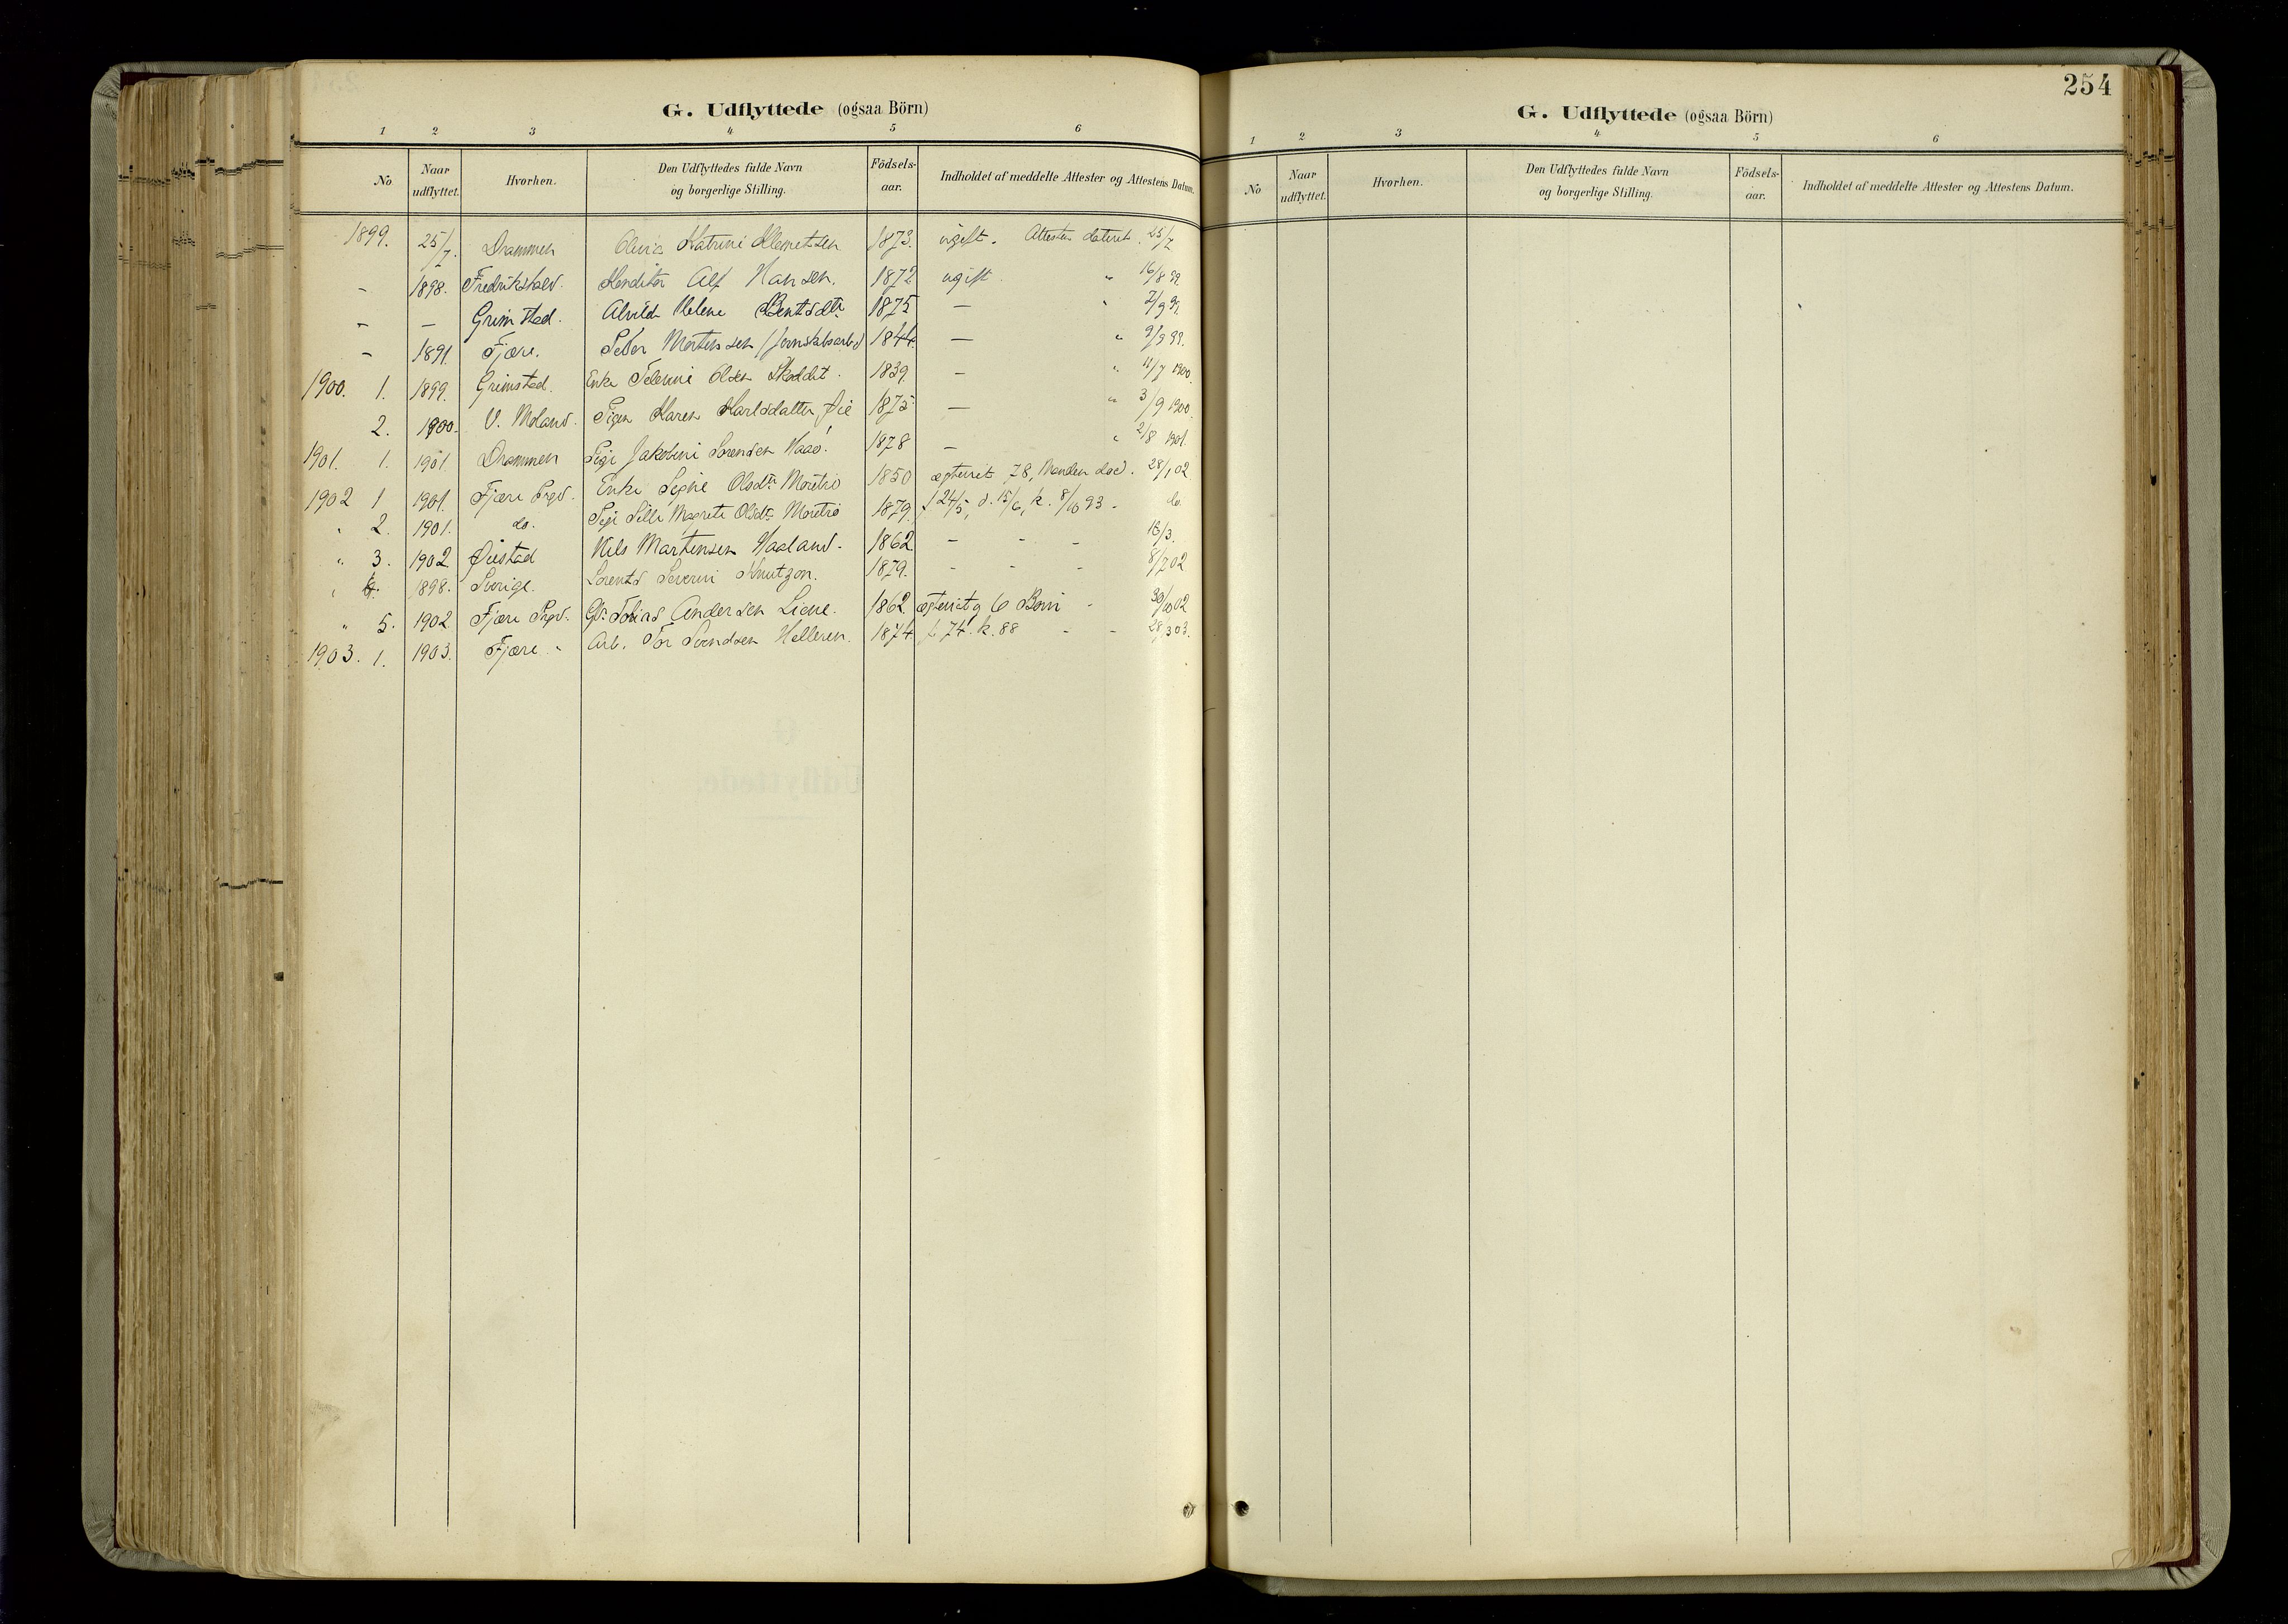 G. Udflyttede (ogsaa Börn)
1 2 3 4 5 6
No Naar udflyttet. Hvorhen. Den Udflyttedes fulde Navn og borgerlige Stilling. Födsels-aar. Indholdet af meddelte Attester og Attestens Datum.
1899. 25/7. Drammen Katrine Klemetsen 1873. ugift. Attesten dateret 25/7
- 1898. Fredrikshald. Konditor Alf Hansen. 1872 ugift. " 16/8 99
- - Grimstad. Alvilde Helene Bentsdtr 1875 — " 7/9 99.
- 1891. Fjære. Peder Mortensen 1844. — " 9/9 99.
1900. 1. 1899. Grimstad. Enke Olsen 1839. — " 11/7 1900.
2. 1900. V. Moland. Pigen Karen Karlsdatter Øie 1875 — " 3/9 1900.
1901. 1. 1901. Drammen Pige Jakobine Sørensen Haaø. 1878 — " 2/8 1901.
1902 1 1901. Fjære Prgd. Enke Signe Olsdtr Moretrø 1850 confirmeret 78, Manden død. 28/1 02
" 2. 1901. do. Pige Magrete Olsdtr Moretrø 1879. f 24/5, d. 15/6, k. 8/10 93 - do.
" 3. 1902. Øiestad Nils Martinsen Haaland. 1862 - - - 13/3.
" 4. 1898. Sverige. Lorents Severin Knutzon. 1879. - - - 8/7 02
" 5. 1902 Fjære Prgd. Tobias Andersen Liene. 1862. og 6 Børn - 30/10 02
1903. 1. 1903. Fjære " Arb. Tor Svendsen Helleren. 1874. f. 74. k. 88 - - 28/3 03.
254
G. Udflyttede (ogsaa Börn)
1 2 3 4 5 6
No Naar udflyttet. Hvorhen. Den Udflyttedes fulde Navn og borgerlige Stilling. Födsels-aar. Indholdet af meddelte Attester og Attestens Datum.